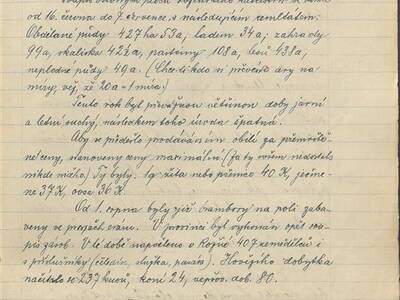 od 16. června do 7. července, s následujícím resultátem:
Obdělané půdy 427 ha 53 a, ladem 34 a; zahrady
99 a, skalisko 42½ a, pastviny 103 a, lesů 431 a,
neplodné půdy 49 a. (Chce-li kdo si převésti ary na
míry, věz, že 20 a = 1 míra.)
Tento rok byl převážnou většinou doby jarní
a letní suchý, následkem toho úroda špatná.
Aby se předešlo prodávání obilí za přemrště-
né ceny, stanoveny ceny maximální. (Za ty ovšem nedostals
nikde ničeho.) Ty byly: 1q žita nebo pšenice 40 K, ječme-
ne 37 K, ovse 36 K.
Od 1. srpna byly již brambory na poli zaba-
veny ve prospěch eráru. V prosinci byl vykonán opět sou-
pis zásob. V té době napočteno v Rozhé 407 zemědělců i
s příslušníky (čeledín, služka, pasák). Hovězího dobytka
načítalo se 237 kusů, koní 24, vepřov. dob. 80.